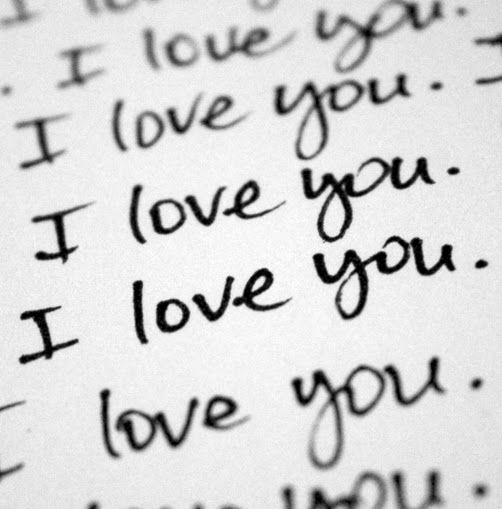 I lo
. I love you.
I love you. I
I love you.
I love you.
I love you.
love you.